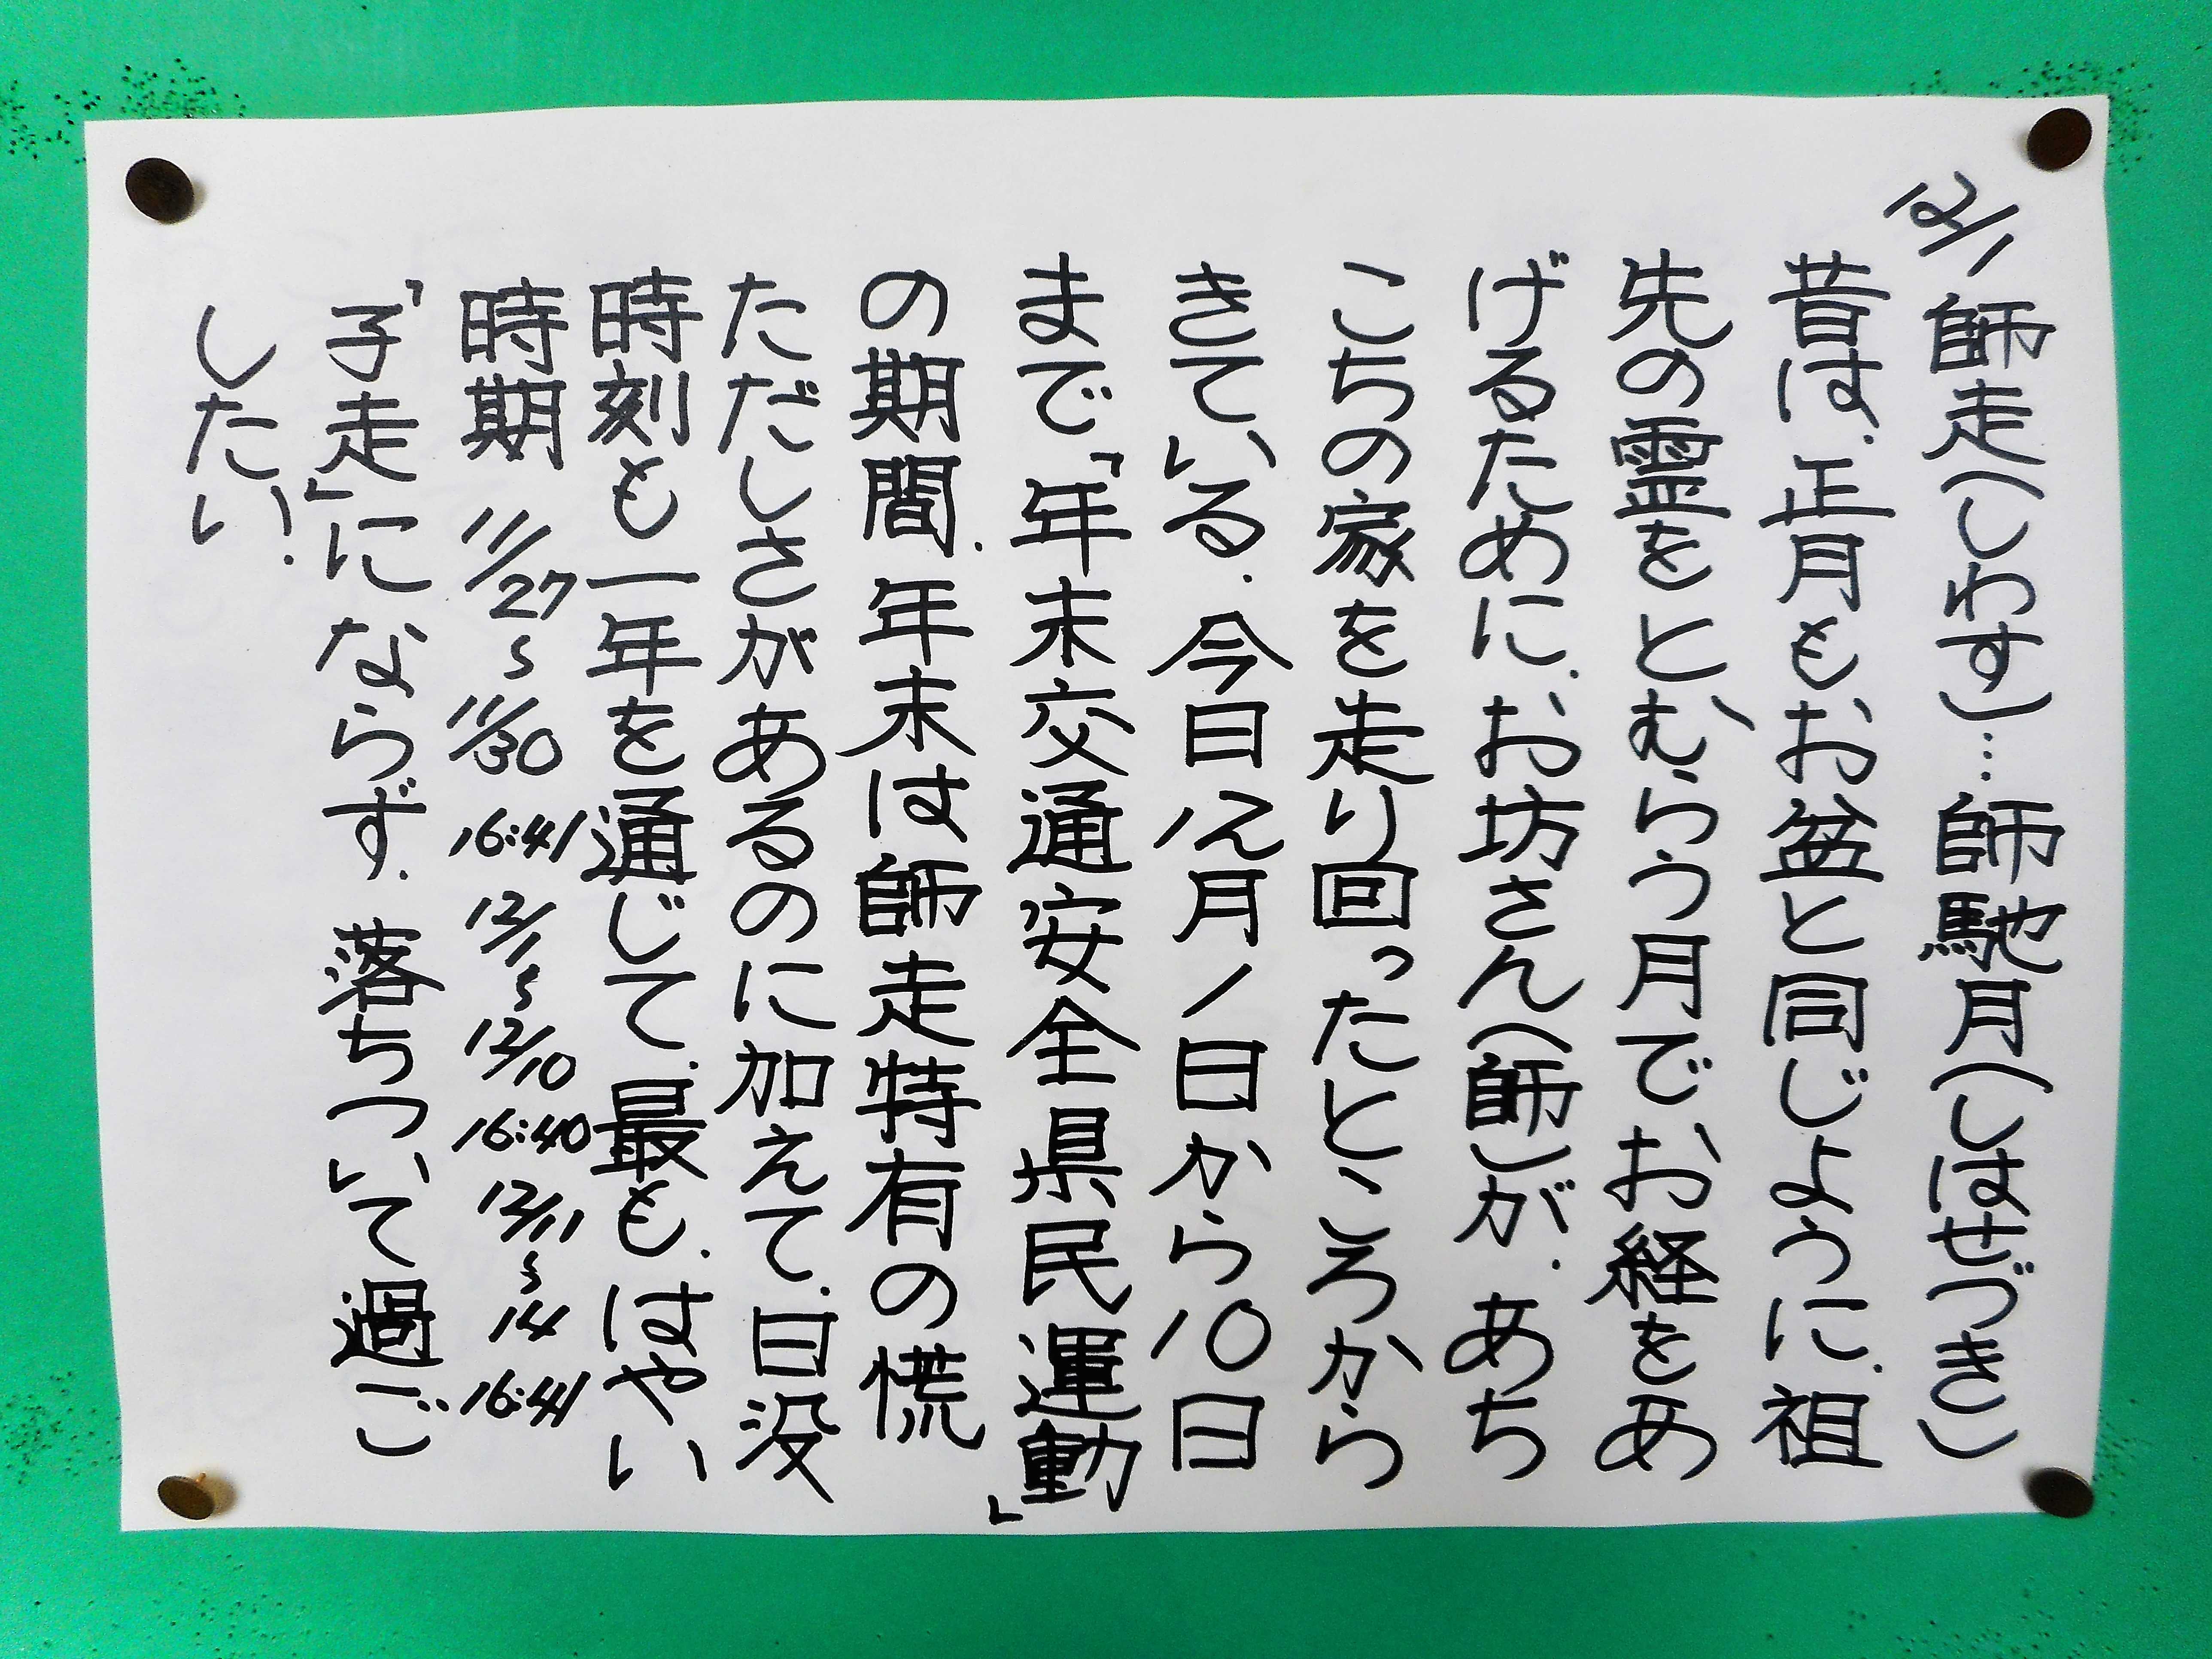 12/1 師走(しわす)…師馳月(しはせづき)
昔は、正月もお盆と同じように、祖
先の霊をとむらう月でお経をあ
げるために、お坊さん(師)が、あち
こちの家を走り回ったところから
きている。今日12月1日から10日
まで「年末交通安全県民運動」
の期間、年末は師走特有の慌
ただしさがあるのに加えて、日没
時刻も一年を通じて、最も、はやい
時期 11/27〜11/30 16:41 12/1〜12/10 16:40 12/11〜14 16:41
「子走」にならず、落ちついて過ご
したい!